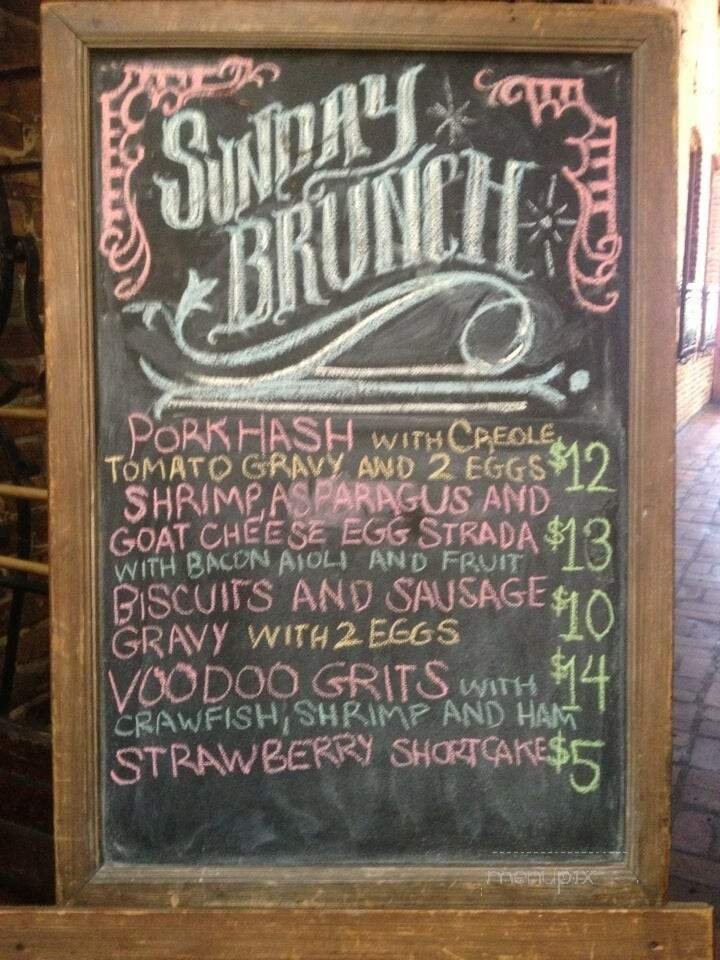 SUNDAY
BRUNCH
PORK HASH WITH CREOLE
TOMATO GRAVY AND 2 EGGS $12
SHRIMP, ASPARAGUS AND
GOAT CHEESE EGG STRADA $13
WITH BACON AIOLI AND FRUIT
BISCUITS AND SAUSAGE $10
GRAVY WITH 2 EGGS
VOODOO GRITS WITH $14
CRAWFISH, SHRIMP AND HAM
STRAWBERRY SHORTCAKE $5
menupix